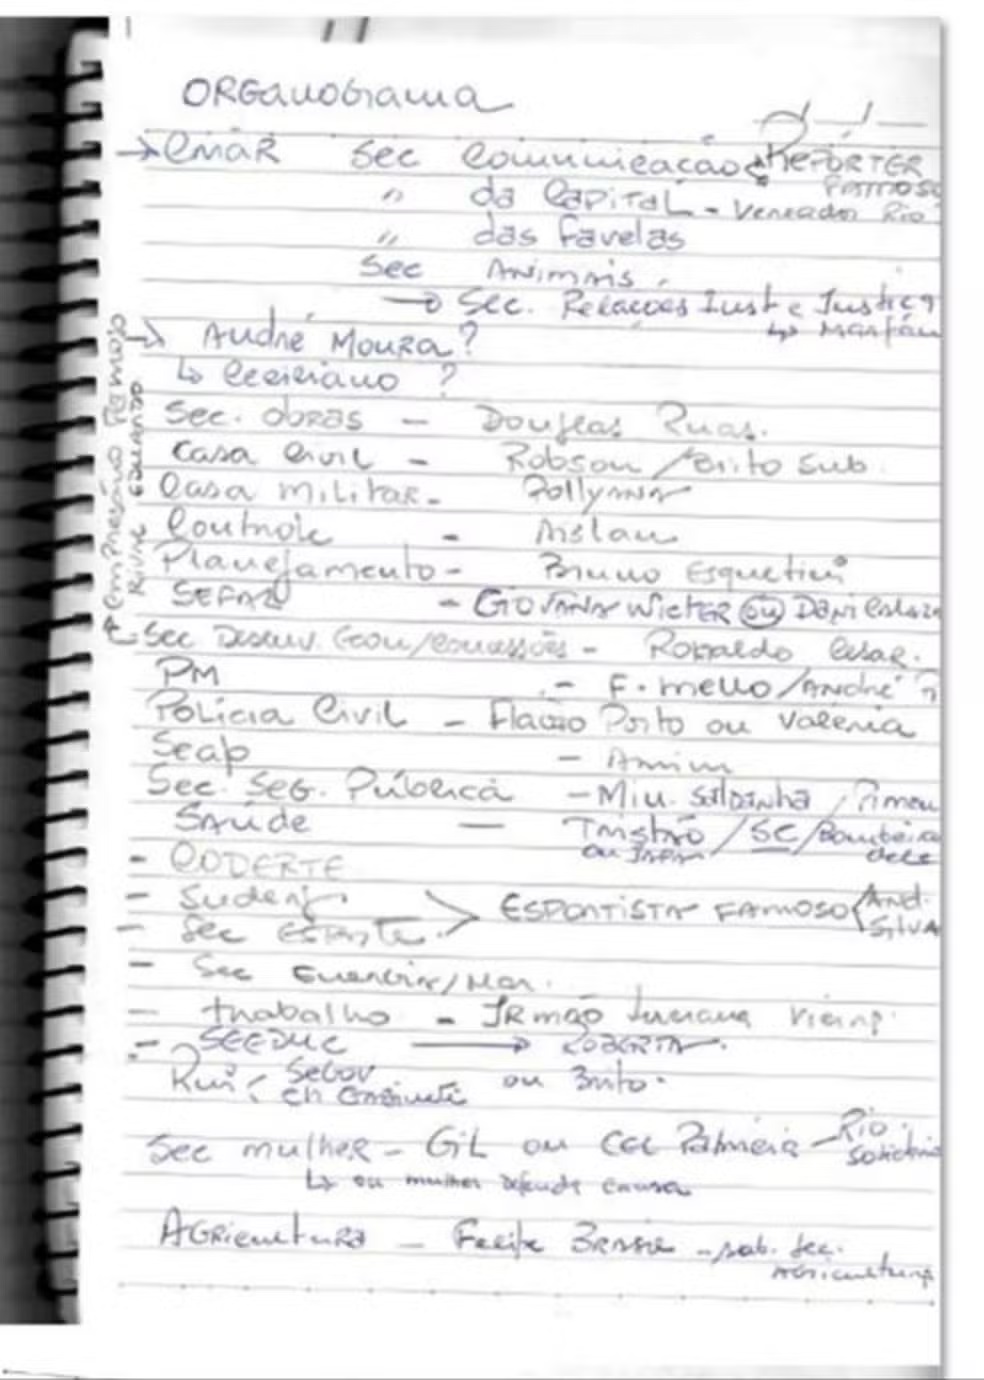 ORGANOGRAMA
→ CMAR Sec Comunicação REPÓRTER FAMOSO
" da Capital - Vereador Rio
" das Favelas
Sec Animais
→ Sec. Relações Inst e Justiça
→ André Moura?
↳ ?
Sec. obras - Douglas Ruas.
Casa Civil - Robson / Brito Sub.
Casa militar - Pollyanna
Controle - Aislan
Planejamento - Bruno
SEFAZ - GIOVANA (ou) Dani
Sec Desenv. Econ/Concessões - Ronaldo Cesar.
Empresário Famoso
PM - F. Mello / André ?
Polícia Civil - Flavio Porto ou Valéria
Seap - Amim
Sec. Seg. Pública - Saldanha /
Saúde - Tristão / SC / Bombeiro
ou dele
- CODERTE
- Suderj
- Sec Esporte > ESPORTISTA FAMOSO < And. Silva
- Sec Energia/Mar.
- trabalho - IRmão Luciana Vieira
- SEEDUC → ROBERTA
Rui < Segov
Ch Gabinete ou Brito.
Sec mulher - Gil ou Cel Palmeira - Rio Solidário
↳ ou mulher defende causa
Agricultura - Felipe Brasil - sub. sec.
Agricultura